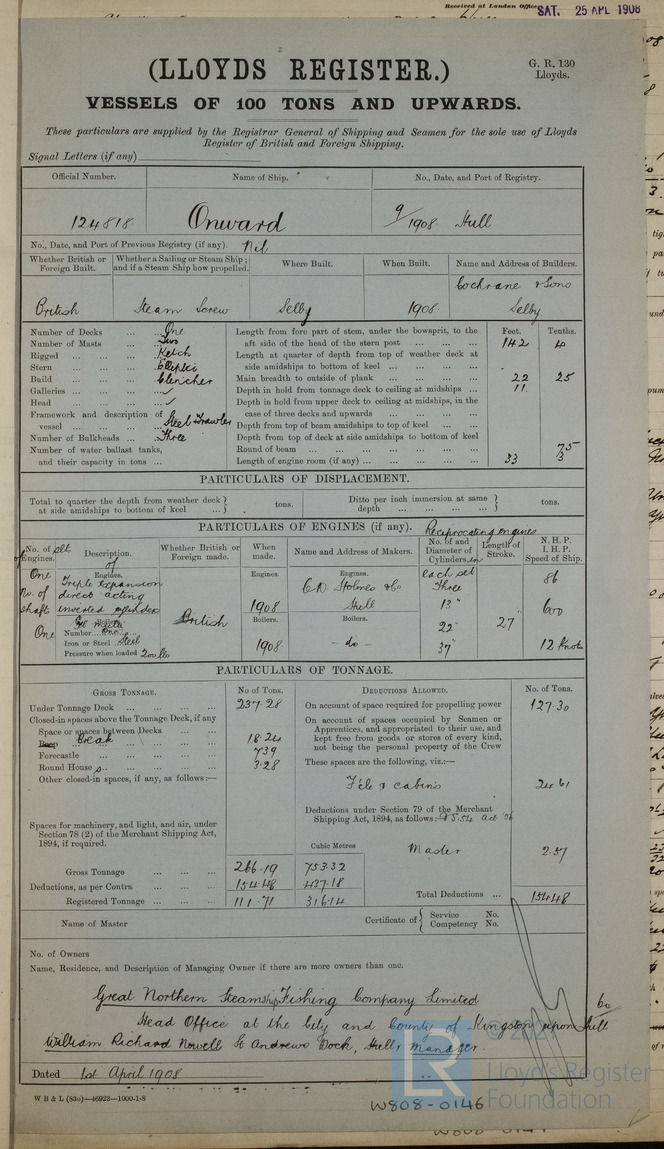 Received at London Office
SAT. 25 APL 1908
(LLOYDS REGISTER.)
G. R. 130
Lloyds.
VESSELS OF 100 TONS AND UPWARDS.
These particulars are supplied by the Registrar General of Shipping and Seamen for the sole use of Lloyds
Register of British and Foreign Shipping.
Signal Letters (if any)
Official Number. Name of Ship. No., Date, and Port of Registry.
124818 Onward 9/1908 Hull
No., Date, and Port of Previous Registry (if any). Nil
Whether British or Foreign Built. Whether a Sailing or Steam Ship; and if a Steam Ship how propelled. Where Built. When Built. Name and Address of Builders.
British Steam Screw Selby 1908 Cochrane & Sons Selby
Number of Decks ... ... One
Number of Masts ... ... Two
Rigged ... ... ... Ketch
Stern ... ... ... Elliptic
Build ... ... ... Clencher
Galleries ... ... ... ✓
Head ... ... ... ✓
Framework and description of vessel ... ... ... Steel Trawler
Number of Bulkheads ... Three
Number of water ballast tanks, and their capacity in tons ...
Feet. Tenths.
Length from fore part of stem, under the bowsprit, to the aft side of the head of the stern post ... ... ... 142 4
Length at quarter of depth from top of weather deck at side amidships to bottom of keel ... ... ... ...
Main breadth to outside of plank ... ... ... ... 22 25
Depth in hold from tonnage deck to ceiling at midships ... 11
Depth in hold from upper deck to ceiling at midships, in the case of three decks and upwards ... ... ... ...
Depth from top of beam amidships to top of keel ... ...
Depth from top of deck at side amidships to bottom of keel
Round of beam ... ... ... ... ... ... 75
Length of engine room (if any) ... ... ... ... 33 3
PARTICULARS OF DISPLACEMENT.
Total to quarter the depth from weather deck at side amidships to bottom of keel ... ... tons.
Ditto per inch immersion at same depth ... ... ... ... tons.
PARTICULARS OF ENGINES (if any). Reciprocating engines
No. of sets of Engines. Description. Whether British or Foreign made. When made. Name and Address of Makers. No. and Diameter of Cylinders in each set Length of Stroke. N. H. P. I. H. P. Speed of Ship.
One
No. of shaft
One
Engines.
Triple expansion direct acting inverted cylinders
British
Engines.
1908
Engines.
C.D. Holmes & Co
Hull
Three
13"
22"
37"
27
86
600
12 Knots
Boilers.
Number One
Iron or Steel Steel
Pressure when loaded 200 lbs
Boilers.
1908
Boilers.
- do -
PARTICULARS OF TONNAGE.
GROSS TONNAGE. No of Tons.
Under Tonnage Deck ... ... ... 237.28
Closed-in spaces above the Tonnage Deck, if any
Space or spaces between Decks ... ...
Poop Break ... ... ... 18.24
Forecastle ... ... ... 7.39
Round Houses ... ... ... 3.28
Other closed-in spaces, if any, as follows:—
Spaces for machinery, and light, and air, under Section 78 (2) of the Merchant Shipping Act, 1894, if required.
Cubic Metres
Gross Tonnage ... ... ... 266.19 753.32
Deductions, as per Contra ... ... ... 154.48 437.18
Registered Tonnage ... ... 111.71 316.14
DEDUCTIONS ALLOWED. No. of Tons.
On account of space required for propelling power 127.30
On account of spaces occupied by Seamen or Apprentices, and appropriated to their use, and kept free from goods or stores of every kind, not being the personal property of the Crew
These spaces are the following, viz.:—
F'cle & cabins 24.61
Deductions under Section 79 of the Merchant Shipping Act, 1894, as follows:
Master 2.57
Total Deductions ... 154.48
Name of Master
Certificate of { Service No. Competency No.
No. of Owners
Name, Residence, and Description of Managing Owner if there are more owners than one.
Great Northern Steamship Fishing Company Limited
Head Office at the City and County of Kingston upon Hull
William Richard Nowell St Andrews Dock, Hull, Manager.
Dated 1st April 1908
W B & L (83o)—46923—1000-1-8
W808-0146
LR
© 2021
Lloyd's Register
Foundation